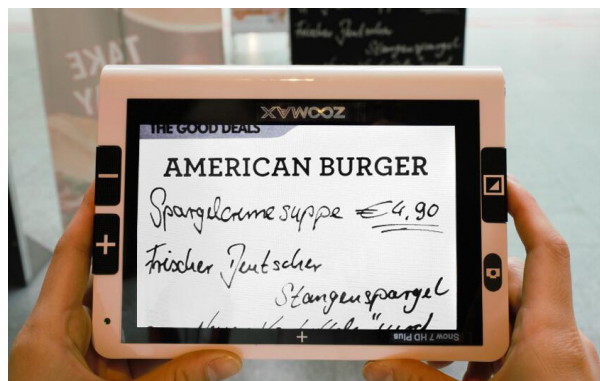 TAKE
Frischer Deutscher
Stangenspargel
ZOOMAX
THE GOOD DEALS
AMERICAN BURGER
Spargelcreme suppe €4,90
Frischer Deutscher
Stangenspargel
Snow 7 HD Plus